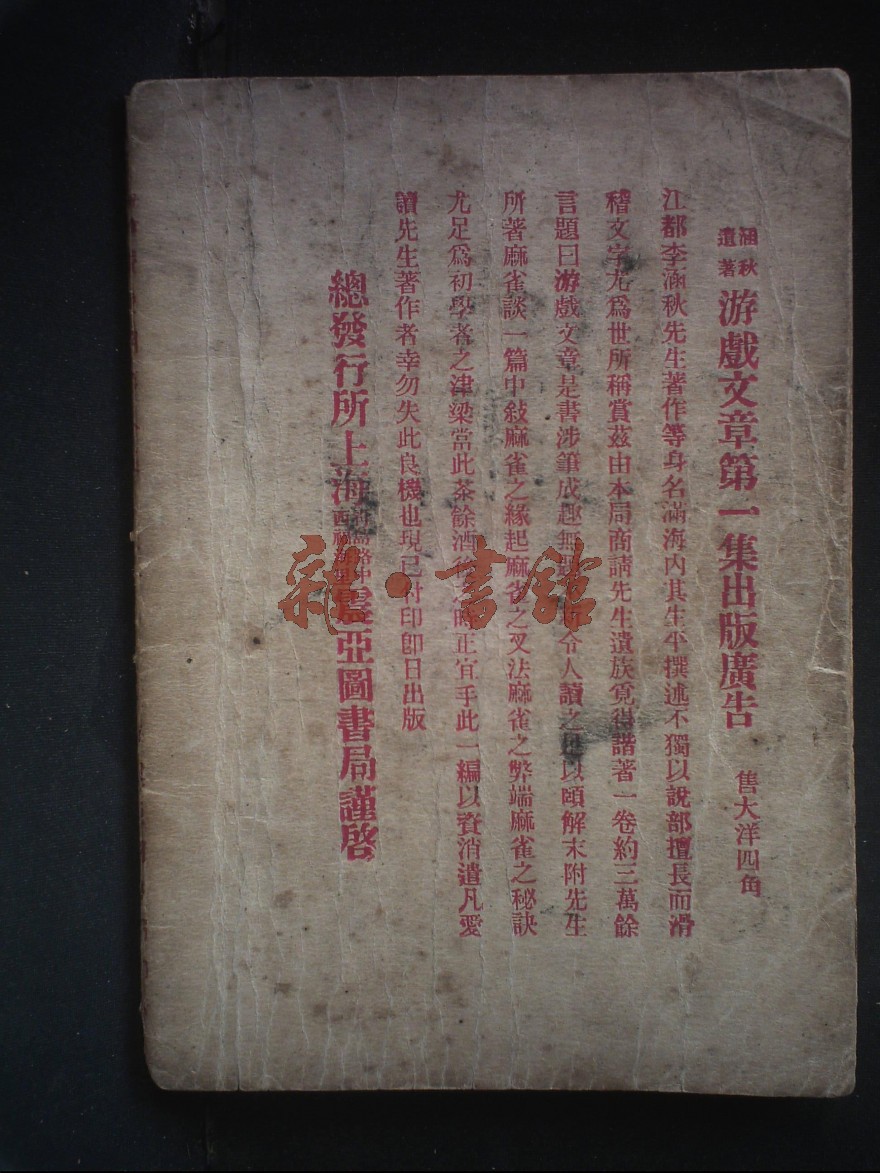 涵秋遺著 游戲文章第一集出版廣告 售大洋四角
江都李涵秋先生著作等身名滿海內其生平撰述不獨以說部擅長而滑
稽文字尤爲世所稱賞茲由本局商請先生遺族覓得諧著一卷約三萬餘
言題曰游戲文章是書涉筆成趣無 令人讀之 以頤解末附先生
所著麻雀談一篇中敍麻雀之緣起麻雀之叉法麻雀之弊端麻雀之秘訣
尤足爲初學者之津梁當此茶餘酒 時正宜手此一編以資消遣凡愛
讀先生著作者幸勿失此良機也現已付印卽日出版
總發行所上海 路中西 震亞圖書局謹啓
雜·書館